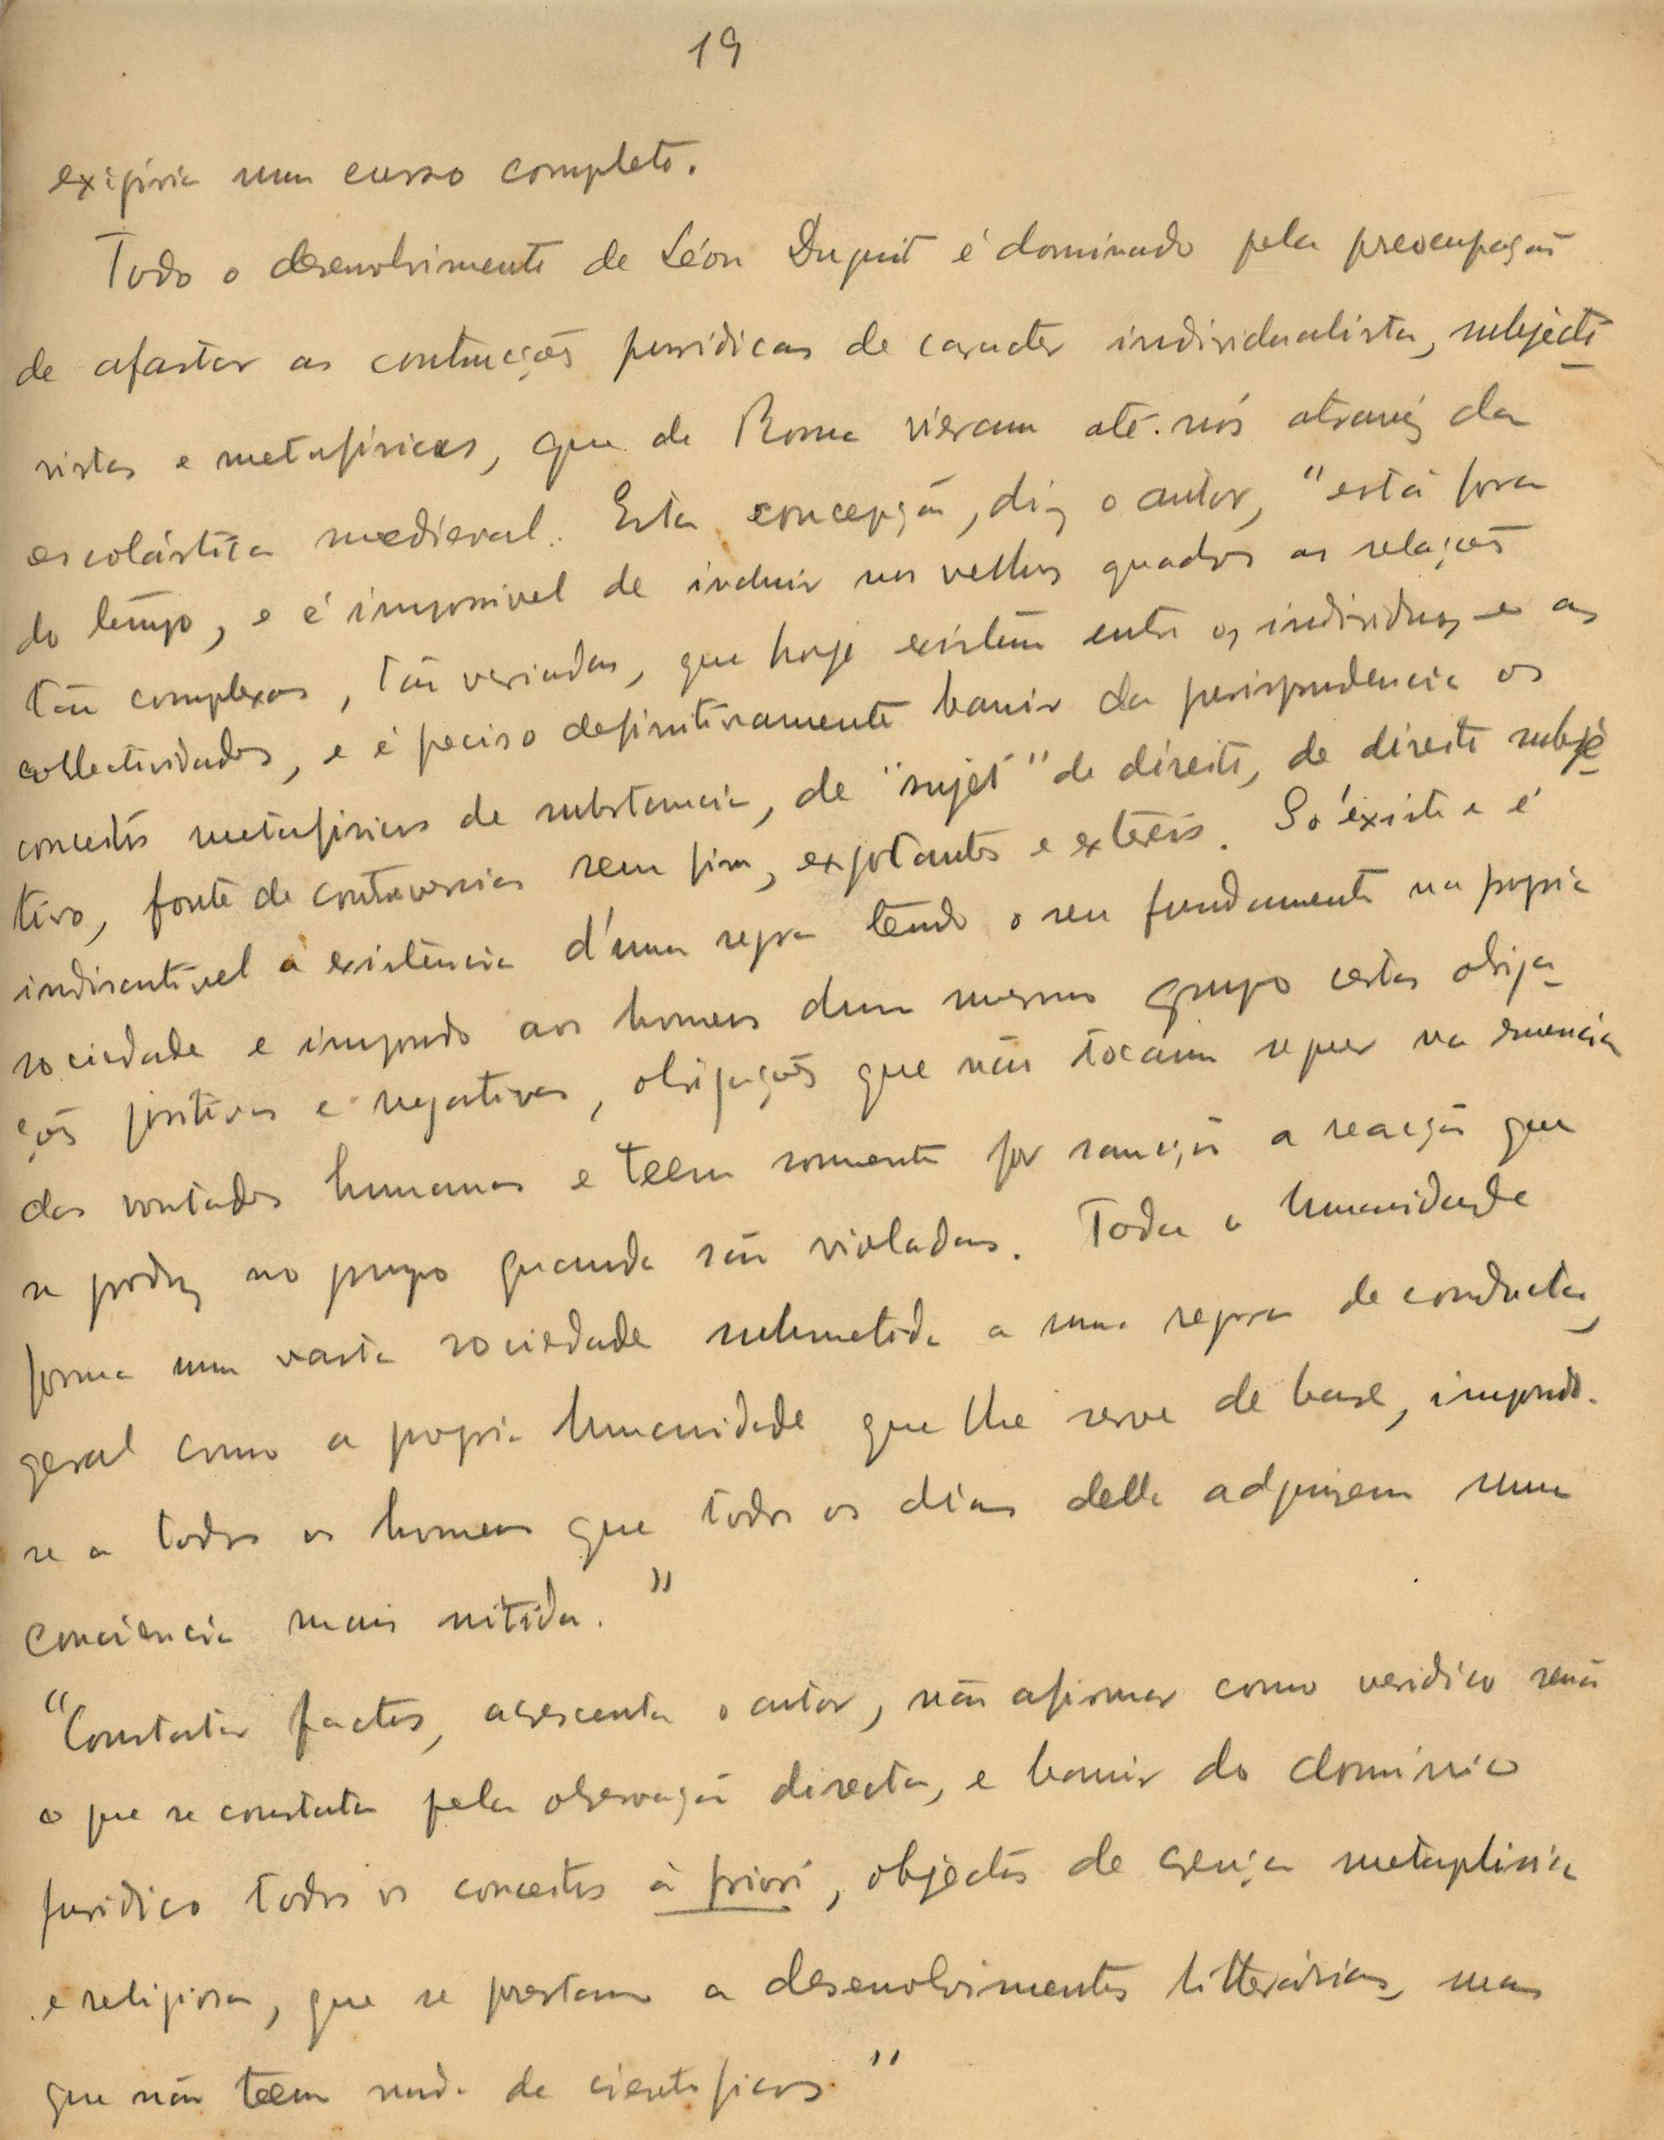 19
exigiria um curso completo.
Todo o desenvolvimento de Léon Duguit é dominado pela preocupação
de afastar as contrucções juridicas de caracter individualista, subjecti-
vistas e metafisicas, que de Roma vieram até nós através da
escolástica medieval. Esta concepção, diz o autor, "está fora
do tempo, e é impossivel de incluir nos velhos quadros as relações
tão complexas, tão variadas, que hoje existem entre os individuos e as
collectividades, e é preciso definitivamente banir da jurisprudencia os
conceitos metafisicos de substancia, de "sujet" de direito, de direito subje-
tivo, fonte de controversias sem fim, exgotantes e estereis. Só existe e é
indiscutivel a existencia d'uma regra tendo o seu fundamento na propria
sociedade e impondo aos homens dum mesmo grupo certas obriga-
ções positivas e negativas, obrigações que não tocam sequer na essencia
das vontades humanas e teem somente por sancção a reacção que
se produz no grupo quando são violadas. Toda a humanidade
forma uma vasta sociedade submetida a uma regra de conducta,
geral como a propria humanidade que lhe serve de base, impondo-
se a todos os homens que todos os dias della adquirem uma
conciencia mais nitida."
"Constatar factos, acrescenta o autor, não afirmar como veridico senão
o que se constata pela observação directa, e banir do dominio
juridico todos os conceitos à priori, objectos de crença metaphisica
e religiosa, que se prestam a desenvolvimentos litterários, mas
que não teem nada de cientificos."